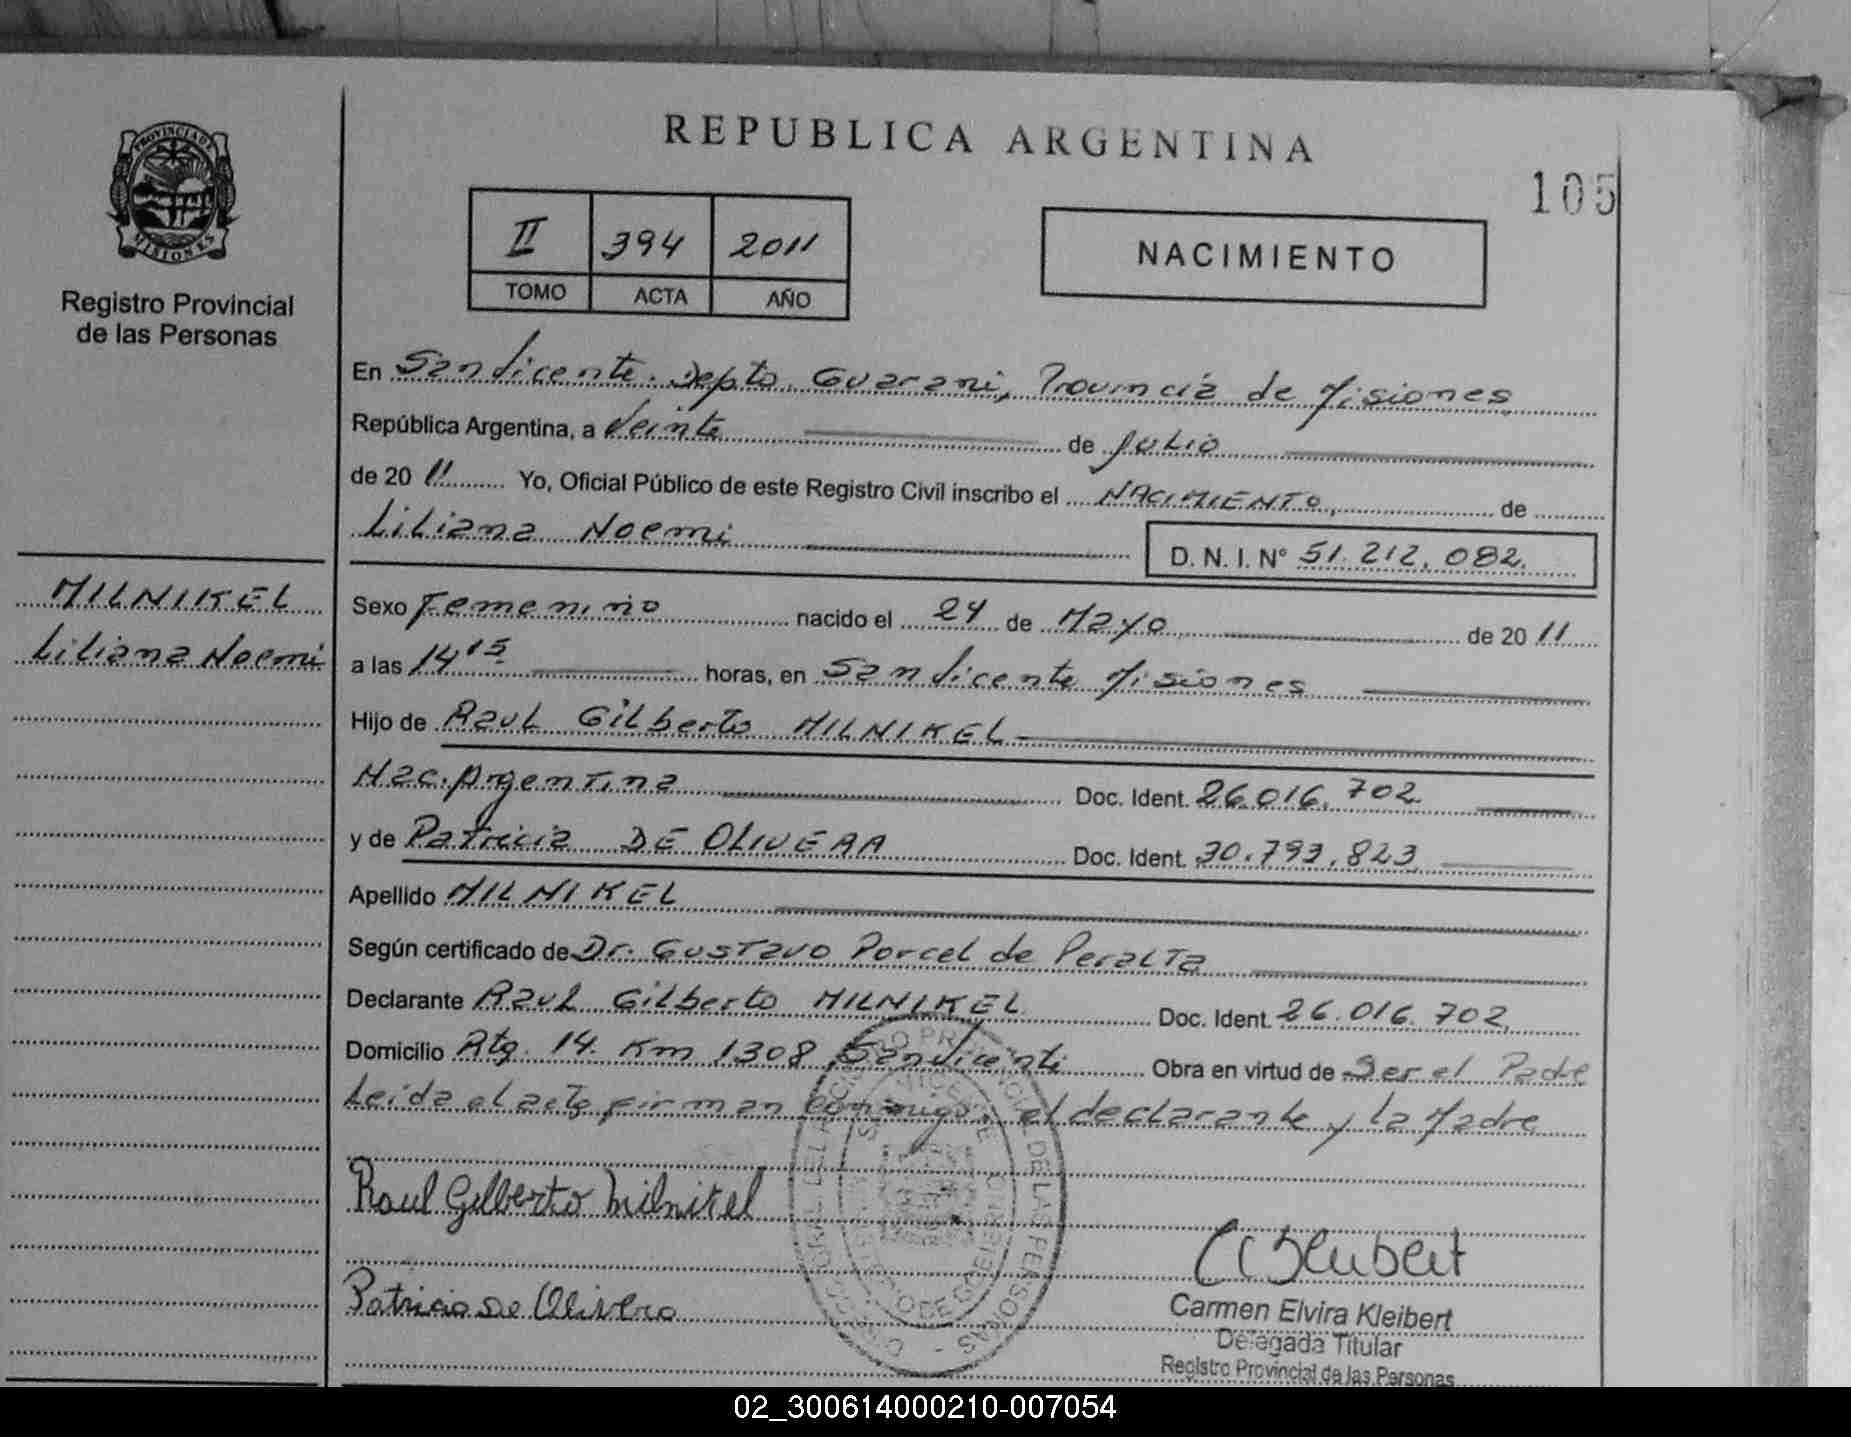 REPUBLICA ARGENTINA
105
PROVINCIA DE
MISIONES
Registro Provincial
de las Personas
II 394 2011
TOMO ACTA AÑO
NACIMIENTO
En San Vicente. Depto. Guarani, Provincia de Misiones
República Argentina, a Veinte de Julio
de 20 11 Yo, Oficial Público de este Registro Civil inscribo el NACIMIENTO, de
Liliana Noemi
D. N. I. N° 51.212.082.
MILNIKEL
Liliana Noemi
Sexo Femenino nacido el 24 de Mayo de 20 11
a las 14 15 horas, en San Vicente Misiones
Hijo de Raul Gilberto MILNIKEL
Nac. Argentina Doc. Ident. 26.016.702
y de Patricia DE OLIVERA Doc. Ident. 30.793.823
Apellido MILNIKEL
Según certificado de Dr. Gustavo Porcel de Peralta
Declarante Raul Gilberto MILNIKEL Doc. Ident. 26.016.702
Domicilio Rta. 14. Km 1308 San Vicente Obra en virtud de Ser el Padre
Leida el acta firman conmigo, el declarante y la Madre
Raul Gilberto Milnikel
Patricia De Olivera
Carmen Elvira Kleibert
Delegada Titular
Registro Provincial de las Personas
02_300614000210-007054